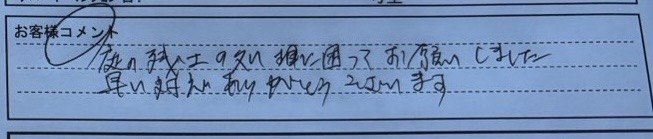 お客様コメント
庭の残土の処理に困ってお願いしました
早い対応ありがとうございます